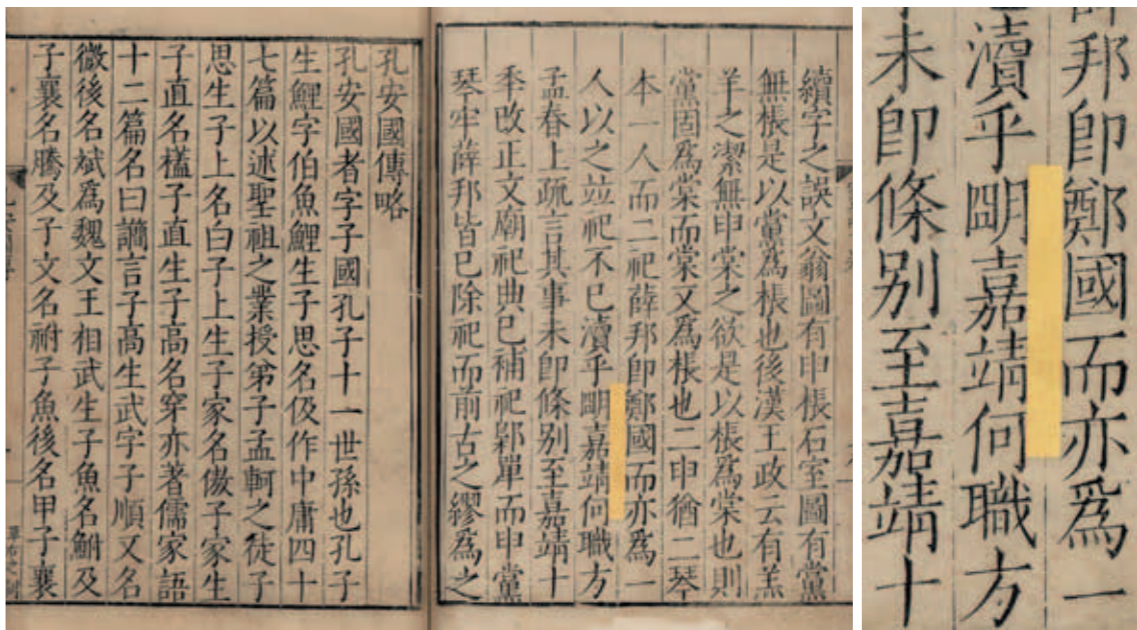 續字之誤文翁圖有申棖石室圖有黨
無棖是以黨爲棖也後漢王政云有羔
羊之潔無申棠之欲是以棖爲棠也則
黨固爲棠而棠又爲棖也二申猶二琴
本一人而二祀薛邦即鄭國而亦爲一
人以之竝祀不已瀆乎朙嘉靖何職方
孟春上疏言其事未即條别至嘉靖十
季改正文廟祀典已補祀鄡單而申黨
琴牢薛邦皆已除祀而前古之繆爲之
孔安國傳略
孔安國者字子國孔子十一世孫也孔子
生鯉字伯魚鯉生子思名伋作中庸四十
七篇以述聖祖之業授弟子孟軻之徒子
思生子上名白子上生子家名傲子家生
子直名榼子直生子高名穿亦著儒家語
十二篇名曰讇言子高生武字子順又名
微後名斌爲魏文王相武生子魚名鮒及
子襄名騰及子文名祔子魚後名甲子襄
邦即鄭國而亦爲一
瀆乎朙嘉靖何職方
未即條别至嘉靖十